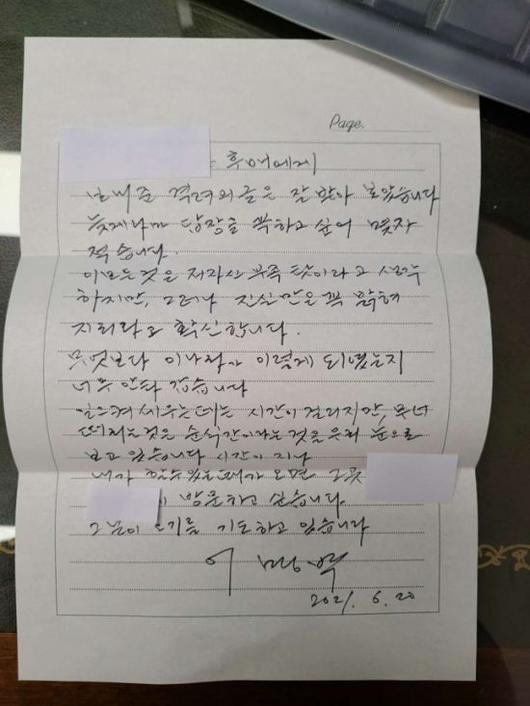 Page.
후배에게
보내준 격려의 글은 잘 받아 보았습니다
늦게나마 답장을 꼭하고 싶어 몇자
적습니다.
이모든것은 저자신 부족 탓이라고 생각
하지만, 그러나 진실만은 꼭 밝혀
지리라고 확신합니다.
무엇보다 이나라가 이렇게 되였는지
너무 안타 갑습니다
일으켜 세우는데는 시간이 걸리지만, 무너
떠려는것은 순식간이라는것을 우리 눈으로
보고 있습니다 시간이 지나
내가 할수있는때가 오면 그곳
방문하고 싶습니다.
그날이 오기를 기도하고 있습니다
이 명 박
2021. 6. 20